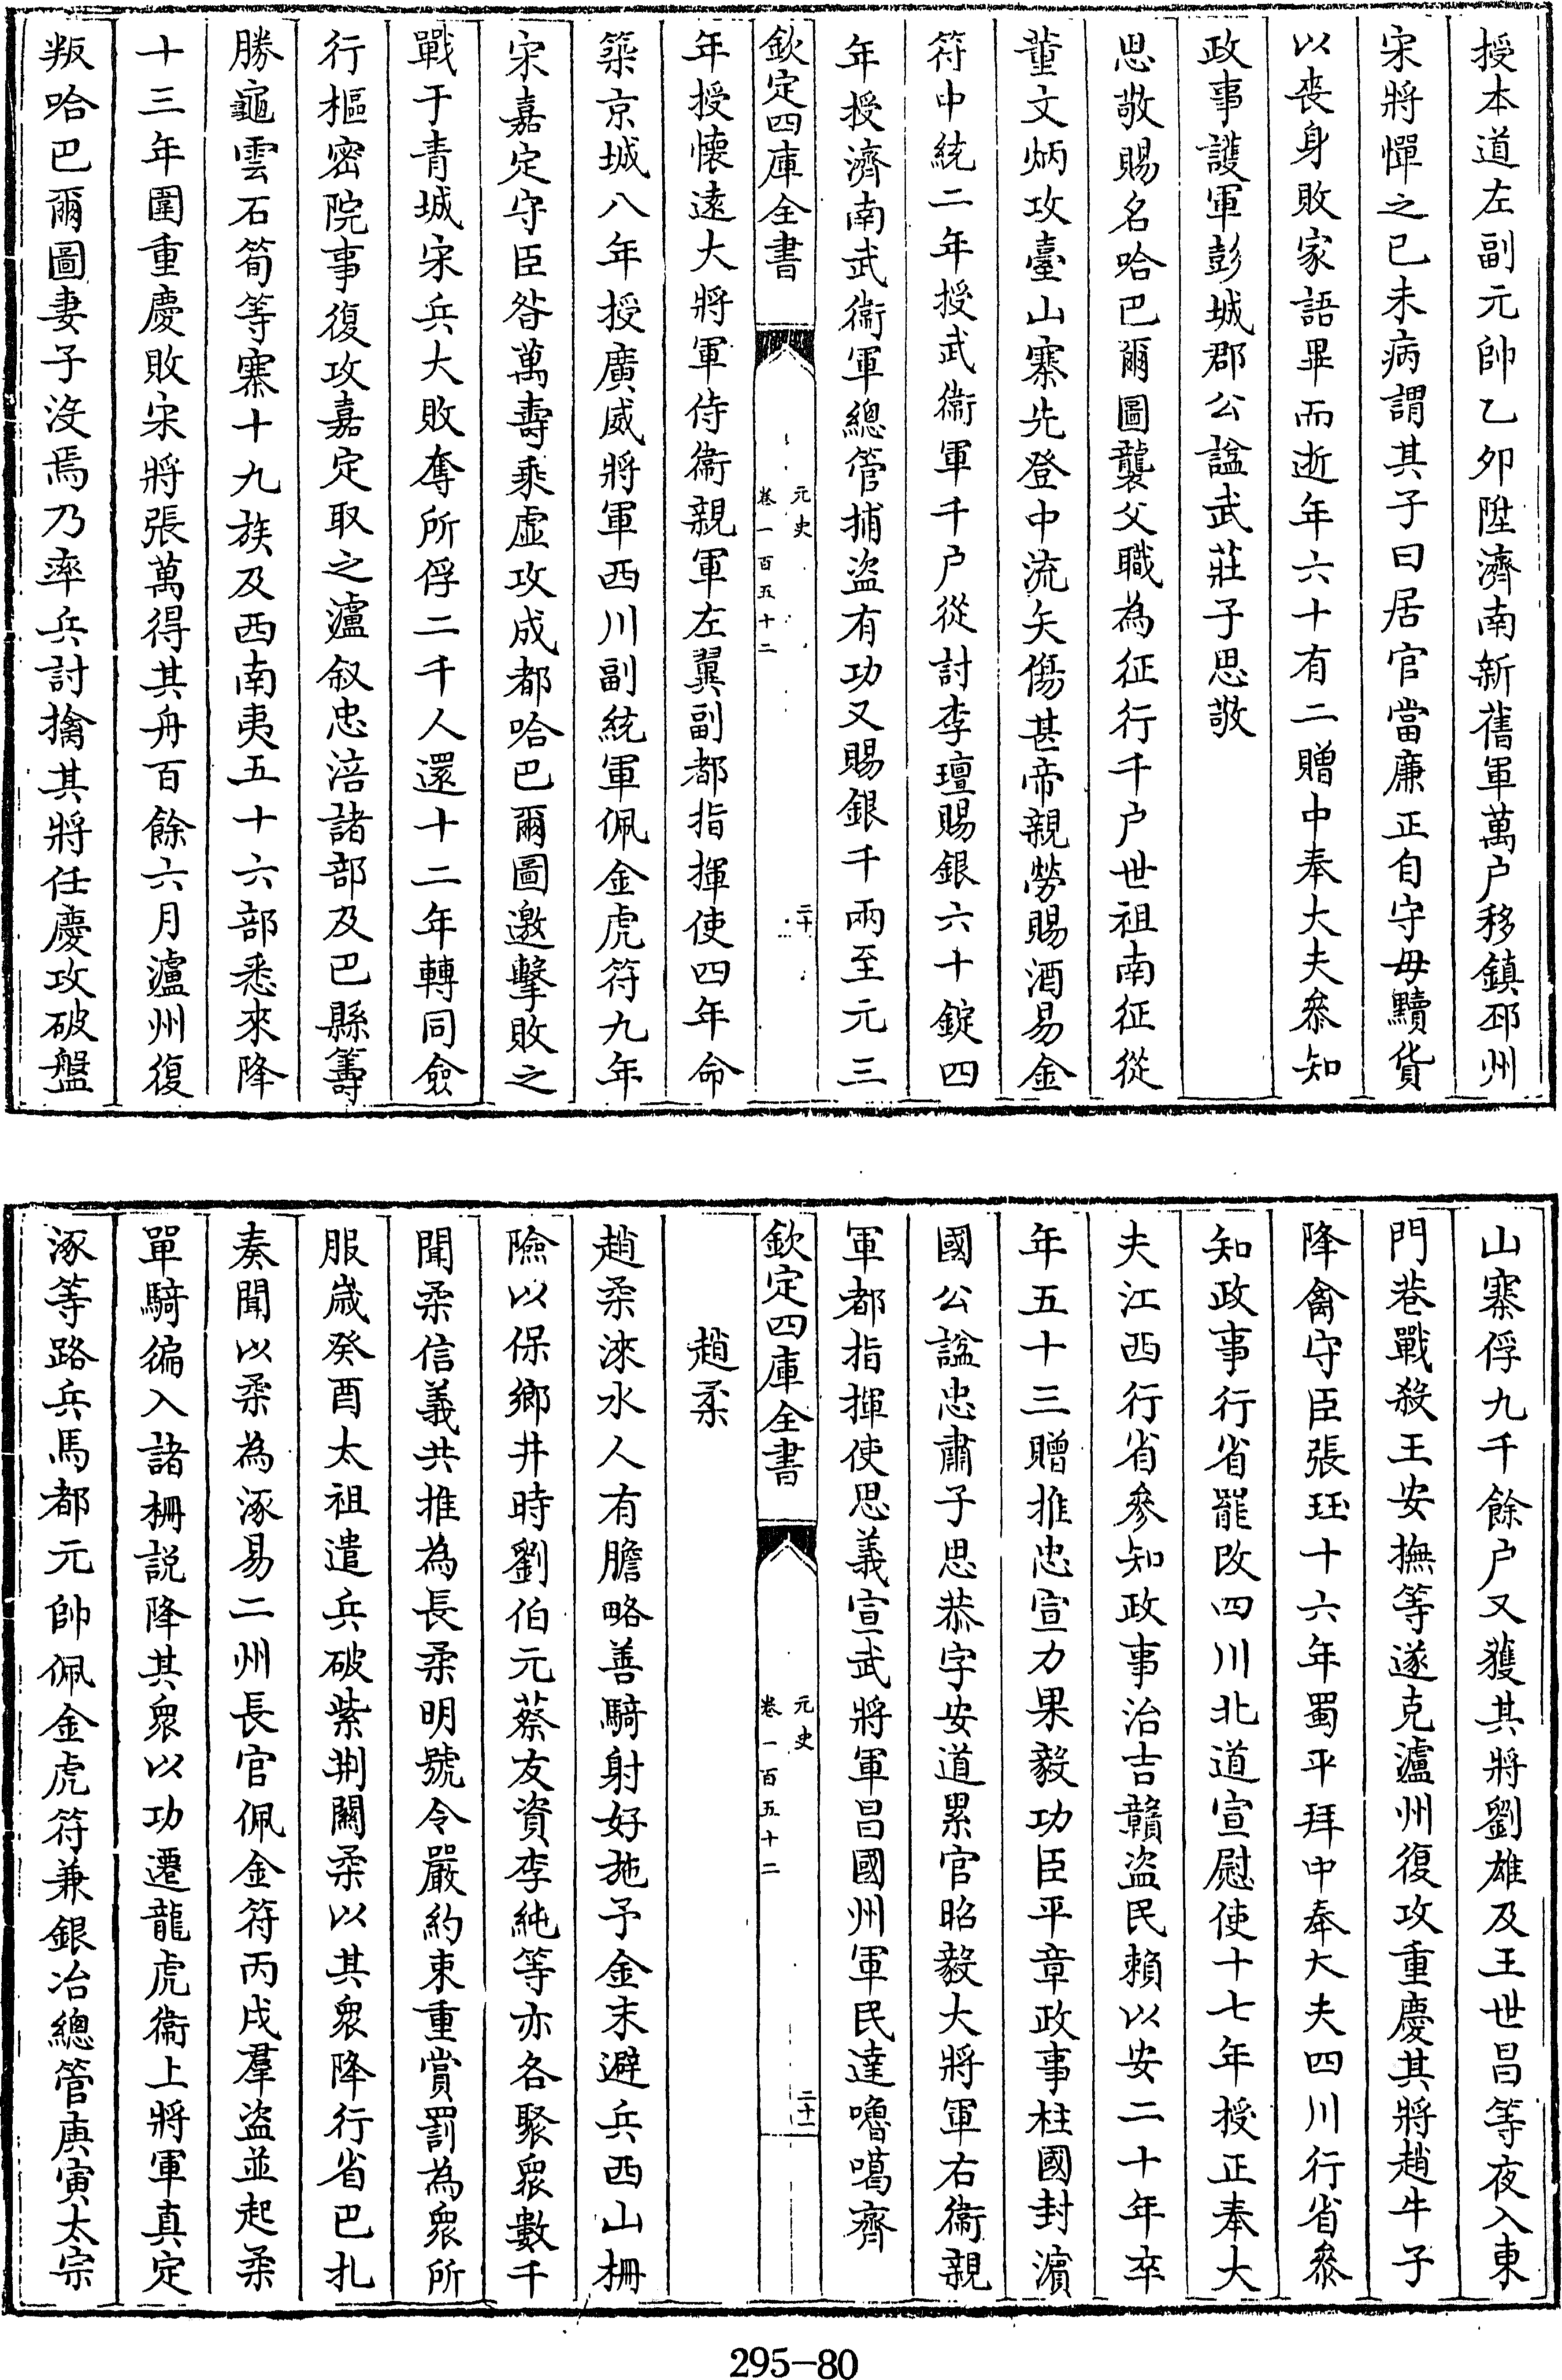 授本道左副元帥乙卯陞濟南新舊軍萬户移鎮邳州
宋將憚之已未病謂其子曰居官當廉正自守毋黷貨
以喪身敗家語畢而逝年六十有二贈中奉大夫叅知
政事護軍彭城郡公諡武莊子思敬
思敬賜名哈巴爾圖襲父職為征行千户世祖南征從
董文炳攻臺山寨先登中流矢傷甚帝親勞賜酒易金
符中統二年授武衞軍千户從討李璮賜銀六十錠四
年授濟南武衞軍總管捕盜有功又賜銀千兩至元三
欽定四庫全書
元史
卷一百五十二
二十
年授懐逺大將軍侍衞親軍左翼副都指揮使四年命
築京城八年授廣威將軍西川副統軍佩金虎符九年
宋嘉定守臣昝萬壽乘虛攻成都哈巴爾圖邀擊敗之
戰于青城宋兵大敗奪所俘二千人還十二年轉同僉
行樞密院事復攻嘉定取之瀘叙忠涪諸部及巴縣籌
勝龜雲石筍等寨十九族及西南夷五十六部悉來降
十三年圍重慶敗宋將張萬得其舟百餘六月瀘州復
叛哈巴爾圖妻子沒焉乃率兵討擒其將任慶攻破盤
山寨俘九千餘户又獲其將劉雄及王世昌等夜入東
門巷戰殺王安撫等遂克瀘州復攻重慶其將趙牛子
降禽守臣張珏十六年蜀平拜中奉大夫四川行省叅
知政事行省罷改四川北道宣慰使十七年授正奉大
夫江西行省參知政事治吉贛盜民賴以安二十年卒
年五十三贈推忠宣力果毅功臣平章政事柱國封濱
國公諡忠肅子思恭字安道累官昭毅大將軍右衞親
軍都指揮使思義宣武將軍昌國州軍民達嚕噶齊
欽定四庫全書
元史
卷一百五十二
二十一
趙柔
趙柔淶水人有膽略善騎射好施予金末避兵西山柵
險以保鄉井時劉伯元蔡友資李純等亦各聚衆數千
聞柔信義共推為長柔明號令嚴約束重賞罰為衆所
服嵗癸酉太祖遣兵破紫荆闗柔以其衆降行省巴扎
奏聞以柔為涿易二州長官佩金符丙戌羣盜並起柔
單騎徧入諸柵説降其衆以功遷龍虎衞上將軍真定
涿等路兵馬都元帥佩金虎符兼銀冶總管庚寅太宗
295-80